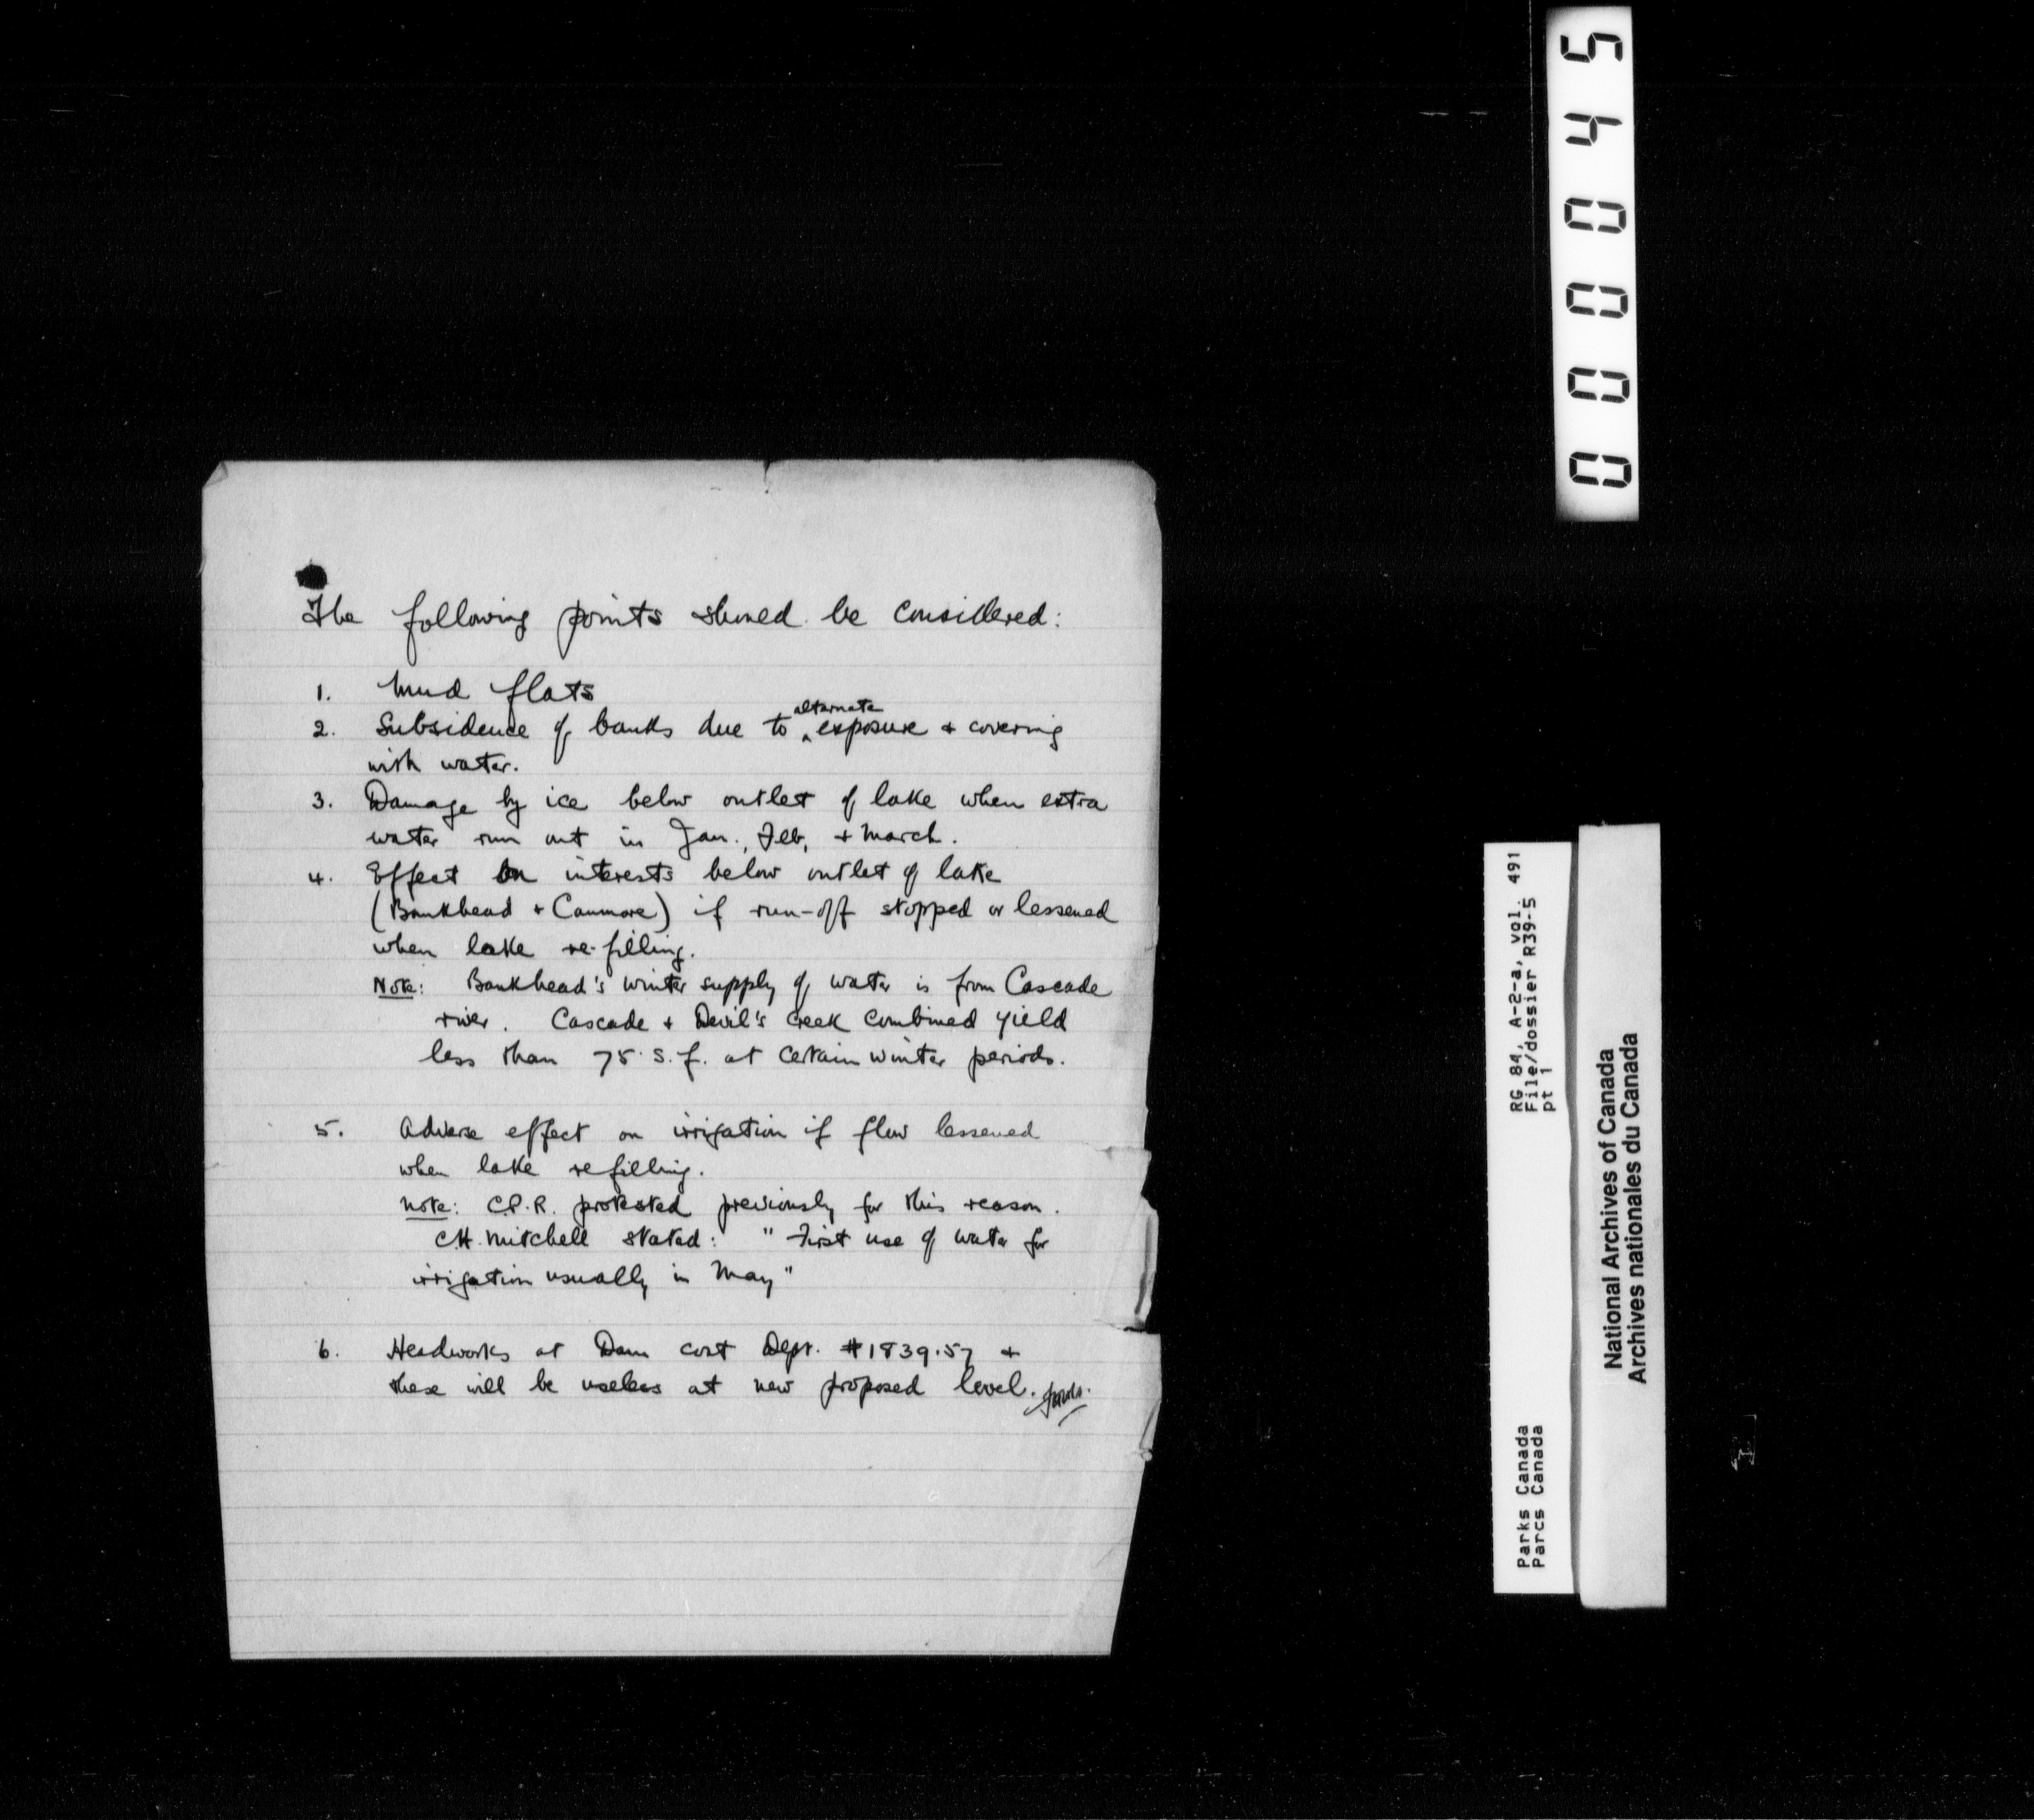 The following points should be considered:
1. Mud flats
2. Subsidence of banks due to alternate exposure + covering
with water.
3. Damage by ice below outlet of lake when extra
water run out in Jan., Feb, + March.
4. Effect on interests below outlet of lake
(Bankhead + Canmore) if run-off stopped or lessened
when lake re-filling.
Note: Bankhead's winter supply of water is from Cascade
river. Cascade + Devil's Creek combined yield
less than 75 s.f. at certain winter periods.
5. Adverse effect on irrigation if flow lessened
when lake refilling.
Note: C.P.R. protested previously for this reason.
C.H. Mitchell stated: "First use of water for
irrigation usually in May"
6. Headworks at Dam cost Dept. $1839.57 +
these will be useless at new proposed level.
000045
RG 84, A-2-a, vol. 491
File/dossier R39-5
pt 1
Parks Canada
Parcs Canada
National Archives of Canada
Archives nationales du Canada